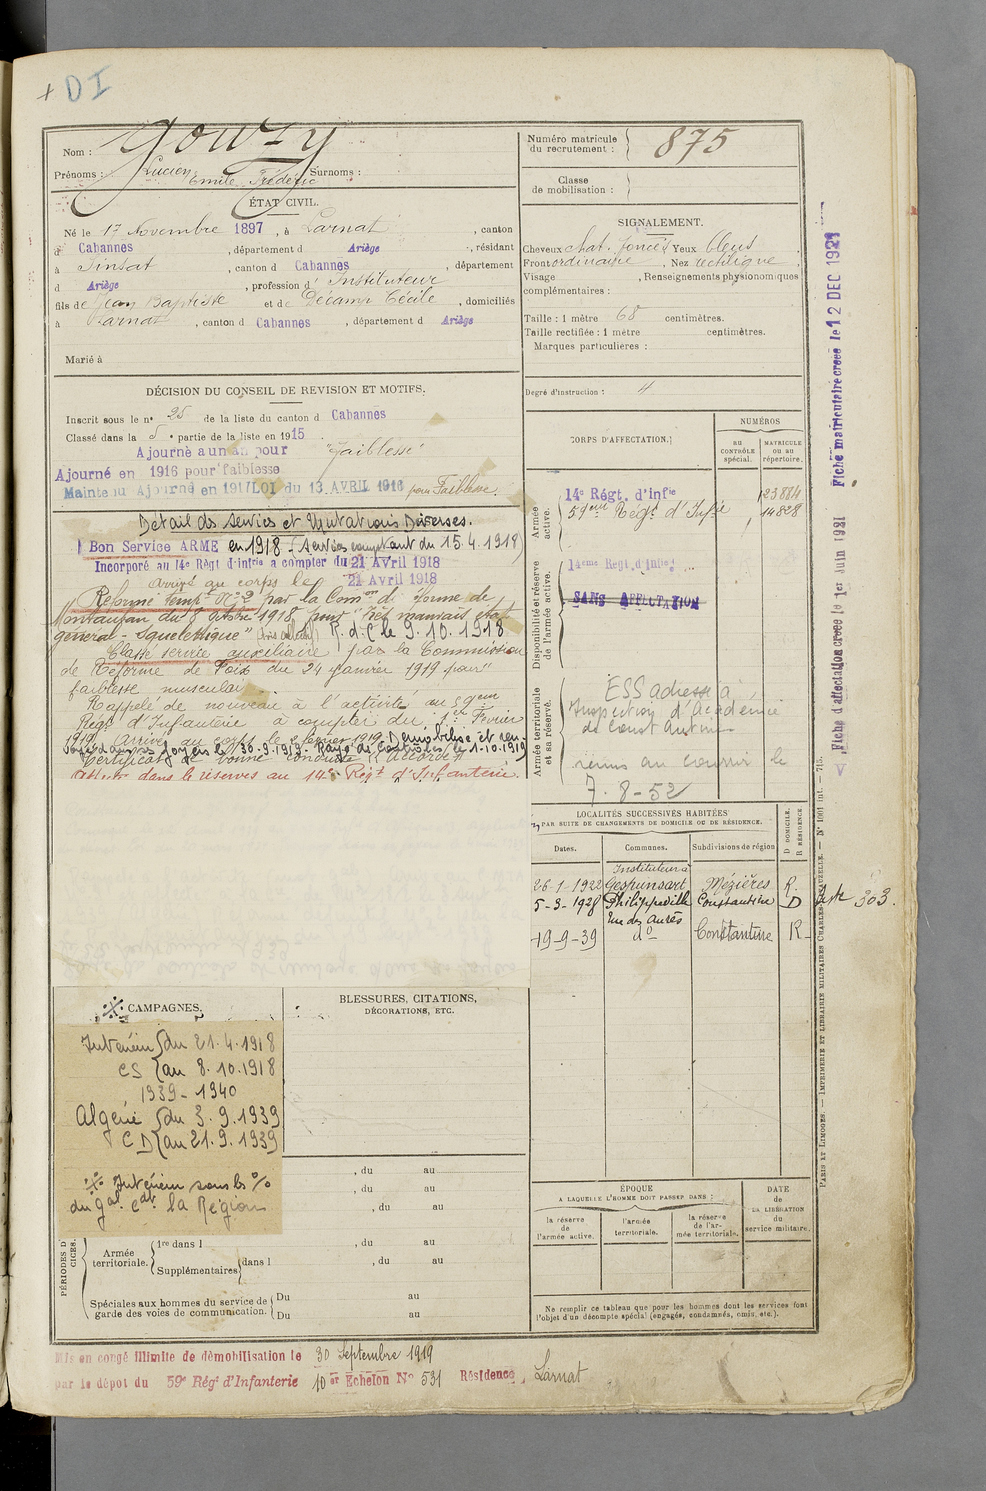 + DI
Nom : Gouzy
Prénoms : Lucien Emile Frédéric Surnoms :
Numéro matricule du recrutement : 875
Classe de mobilisation :
ÉTAT CIVIL.
Né le 17 Novembre 1897, à Larnat, canton
d Cabannes, département d Ariège, résidant
à Sinsat, canton d Cabannes, département
d Ariège, profession d' Instituteur
fils de Jean Baptiste et de Décamp Cécile, domiciliés
à Larnat, canton d Cabannes, département d Ariège
Marié à
SIGNALEMENT.
Cheveux chat. foncés Yeux bleus
Front ordinaire, Nez rectiligne,
Visage , Renseignements physionomiques
complémentaires :
Taille : 1 mètre 68 centimètres.
Taille rectifiée : 1 mètre centimètres.
Marques particulières :
Degré d'instruction : 4
DÉCISION DU CONSEIL DE REVISION ET MOTIFS.
Inscrit sous le n° 25 de la liste du canton d Cabannes
Classé dans la 5e partie de la liste en 1915
Ajourné a un an pour "Faiblesse"
Ajourné en 1916 pour faiblesse
Maintenu Ajourné en 1917 LOI du 13 AVRIL 1916 pour Faiblesse.
Détail des Services et Mutations Diverses.
Bon Service ARMÉ en 1918 - (services comptant du 15.4.1918)
Incorporé au 14e Régt d'Infrie a compter du 21 Avril 1918
Arrivé au corps le 21 Avril 1918
Réformé temp. N°2 par la Comon de Réforme de
Montauban du 8 Octobre 1918 pour "très mauvais état
général - Squelettique" R. d. C le 9.10.1918
Classé service auxiliaire par la Commission
de Réforme de Foix du 24 Janvier 1919 pour "
faiblesse musculaire
Rappelé de nouveau à l'activité au 59eme
Régt d'Infanterie à compter du 1er Fevrier
1919. Arrivé au corps le 2 fevrier 1919. Démobilisé et ren-
voyé dans ses foyers le 30.9.1919. Rayé des Contrôles le 1.10.1919
Certificat de bonne conduite "Accordé"
Affecté dans le réserves au 14e Régt d'Infanterie.
CORPS D'AFFECTATION.
NUMÉROS
AU CONTRÔLE spécial.
MATRICULE ou au répertoire.
Armée active.
14e Régt. d'Infie 23884
59eme Régt d'Infrie 14828
Disponibilité et réserve de l'armée active.
14eme Régt d'Infie
SANS AFFECTATION
Armée territoriale et sa réserve.
ESS adressé à
Inspection d'Académie
de Constantine
remis au courrier le
7-8-52
LOCALITÉS SUCCESSIVES HABITÉES
PAR SUITE DE CHANGEMENTS DE DOMICILE OU DE RÉSIDENCE.
Dates. Communes. Subdivisions de région D DOMICILE. R RÉSIDENCE.
Instituteur à
26-1-1922 Gespunsart Mézières R.
5-3-1928 Philippeville Constantine D
Rue des Aurès
19-9-39 do Constantine R
303.
CAMPAGNES.
Intérieur du 21.4.1918
CS au 8.10.1918
1939-1940
Algérie du 3.9.1939
CD au 21.9.1939
Intérieur sous les %
du gal Cdt la Région
BLESSURES, CITATIONS,
DÉCORATIONS, ETC.
, du au
, du au
, du au
PÉRIODES D
CICES.
Armée territoriale. 1re dans l , du au
Supplémentaires dans l , du au
Spéciales aux hommes du service de Du au
garde des voies de communication. Du au
ÉPOQUE
A LAQUELLE L'HOMME DOIT PASSER DANS :
la réserve de l'armée active.
l'armée territoriale.
la réserve de l'armée territoriale.
DATE de LA LIBÉRATION du service militaire.
Ne remplir ce tableau que pour les hommes dont les services font
l'objet d'un décompte spécial (engagés, condamnés, omis, etc.).
Mis en congé illimité de démobilisation le 30 Septembre 1919
par le dépôt du 59e Régt d'Infanterie 10er Echelon N° 531 Résidence, Larnat
Fiche d'affectation créée le 1er Juin 1921 Fiche matriculaire créée le 12 DEC 1921
PARIS ET LIMOGES. — IMPRIMERIE ET LIBRAIRIE MILITAIRES CHARLES-LAVAUZELLE. — N° 1001 int. — 715.